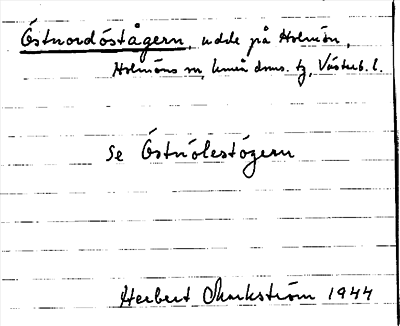 Östnordöstågern, udde på Holmön,
Holmöns sn, Umeå doms. tg, Västerb. l.
Se Östnólestógern
Herbert Markström 1944